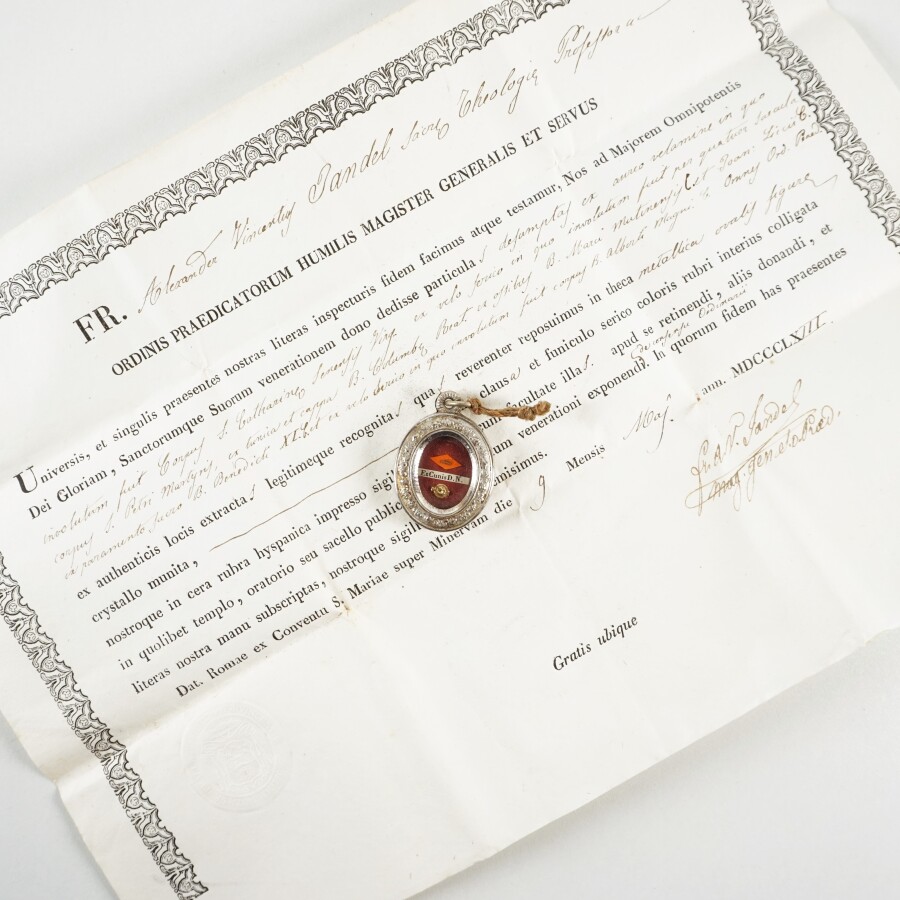 FR. Alexander Vincentius Jandel Sacrae Theologiae Professor ac
ORDINIS PRAEDICATORUM HUMILIS MAGISTER GENERALIS ET SERVUS
Universis, et singulis praesentes nostras literas inspecturis fidem facimus atque testamur, Nos ad Majorem Omnipotentis
Dei Gloriam, Sanctorumque Suorum venerationem dono dedisse particulas desumptas ex aureo velamine in quo
involutum fuit Corpus S. Catharinae Senensis Virg. ex velo serico in quo involutum fuit per quatuor saecula
corpus S. Petri Martyris, ex tunica et cappa B. Columbae Reat. ex ossibus B. Marci Mutinensis et Joan: Liccio
ex paramento sacro B. Benedicti XI. et ex velo serico in quo involutum fuit corpus B. Alberti Magni omnes Ord. Praed.
ex authenticis locis extractas legitimeque recognitas quas reverenter reposuimus in theca metallica ovalis figurae
crystallo munita, clausa et funiculo serico coloris rubri interius colligata
nostroque in cera rubra hyspanica impresso facultate illas apud se retinendi, aliis donandi, et
in quolibet templo, oratorio seu sacello venerationi exponendi. In quorum fidem has praesentes
literas nostra manu subscriptas, nostroque
Dat. Romae ex Conventu S. Mariae super Minervam die 9 Mensis Maj. ann. MDCCCLXIII.
Fr. A. V. Jandel
Mag. Gen. Ord. Praed.
Gratis ubique
Ex Cunis D. N.